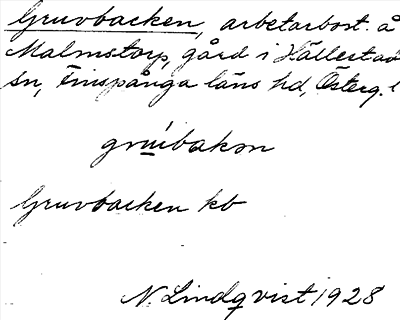 Gruvbacken, arbetarbost. å
Malmstorp, gård i Hällestad
sn, Finspånga läns hd, Österg. l
gru̱i̱bakən
Gruvbacken kb
N. Lindqvist 1928